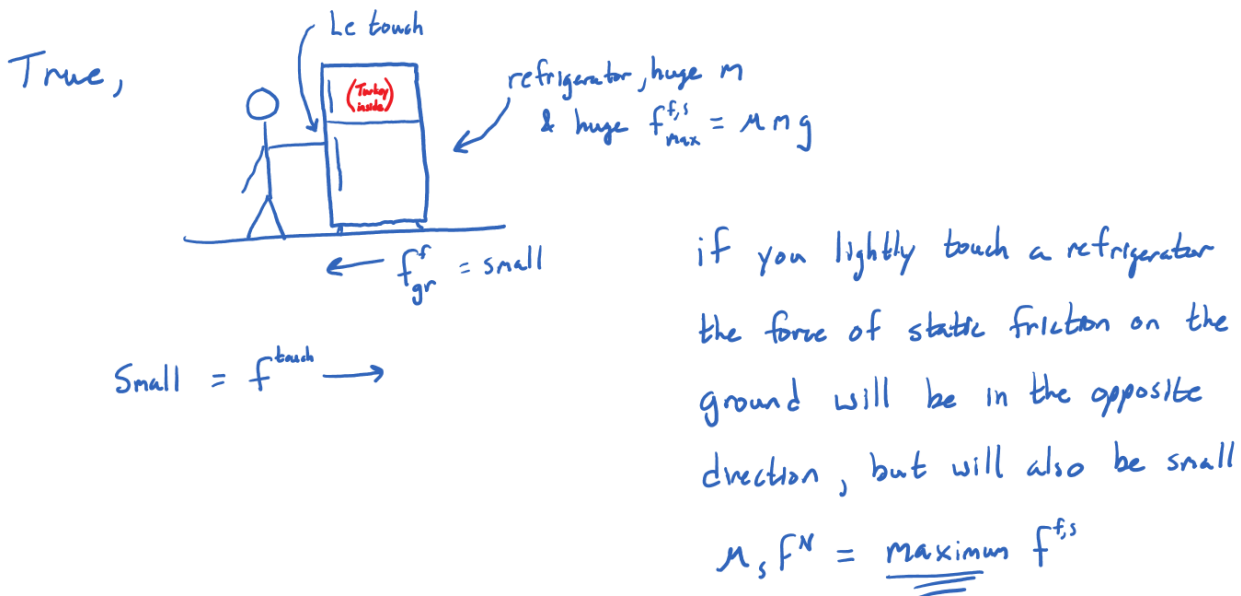 True,
Le touch
(Turkey
inside)
refrigerator, huge m
& huge f^{f,s}_{max} = μ m g
f^{f}_{gr} = small
Small = f^{touch} →
if you lightly touch a refrigerator
the force of static friction on the
ground will be in the opposite
direction, but will also be small
μ_s F^N = maximum f^{f,s}